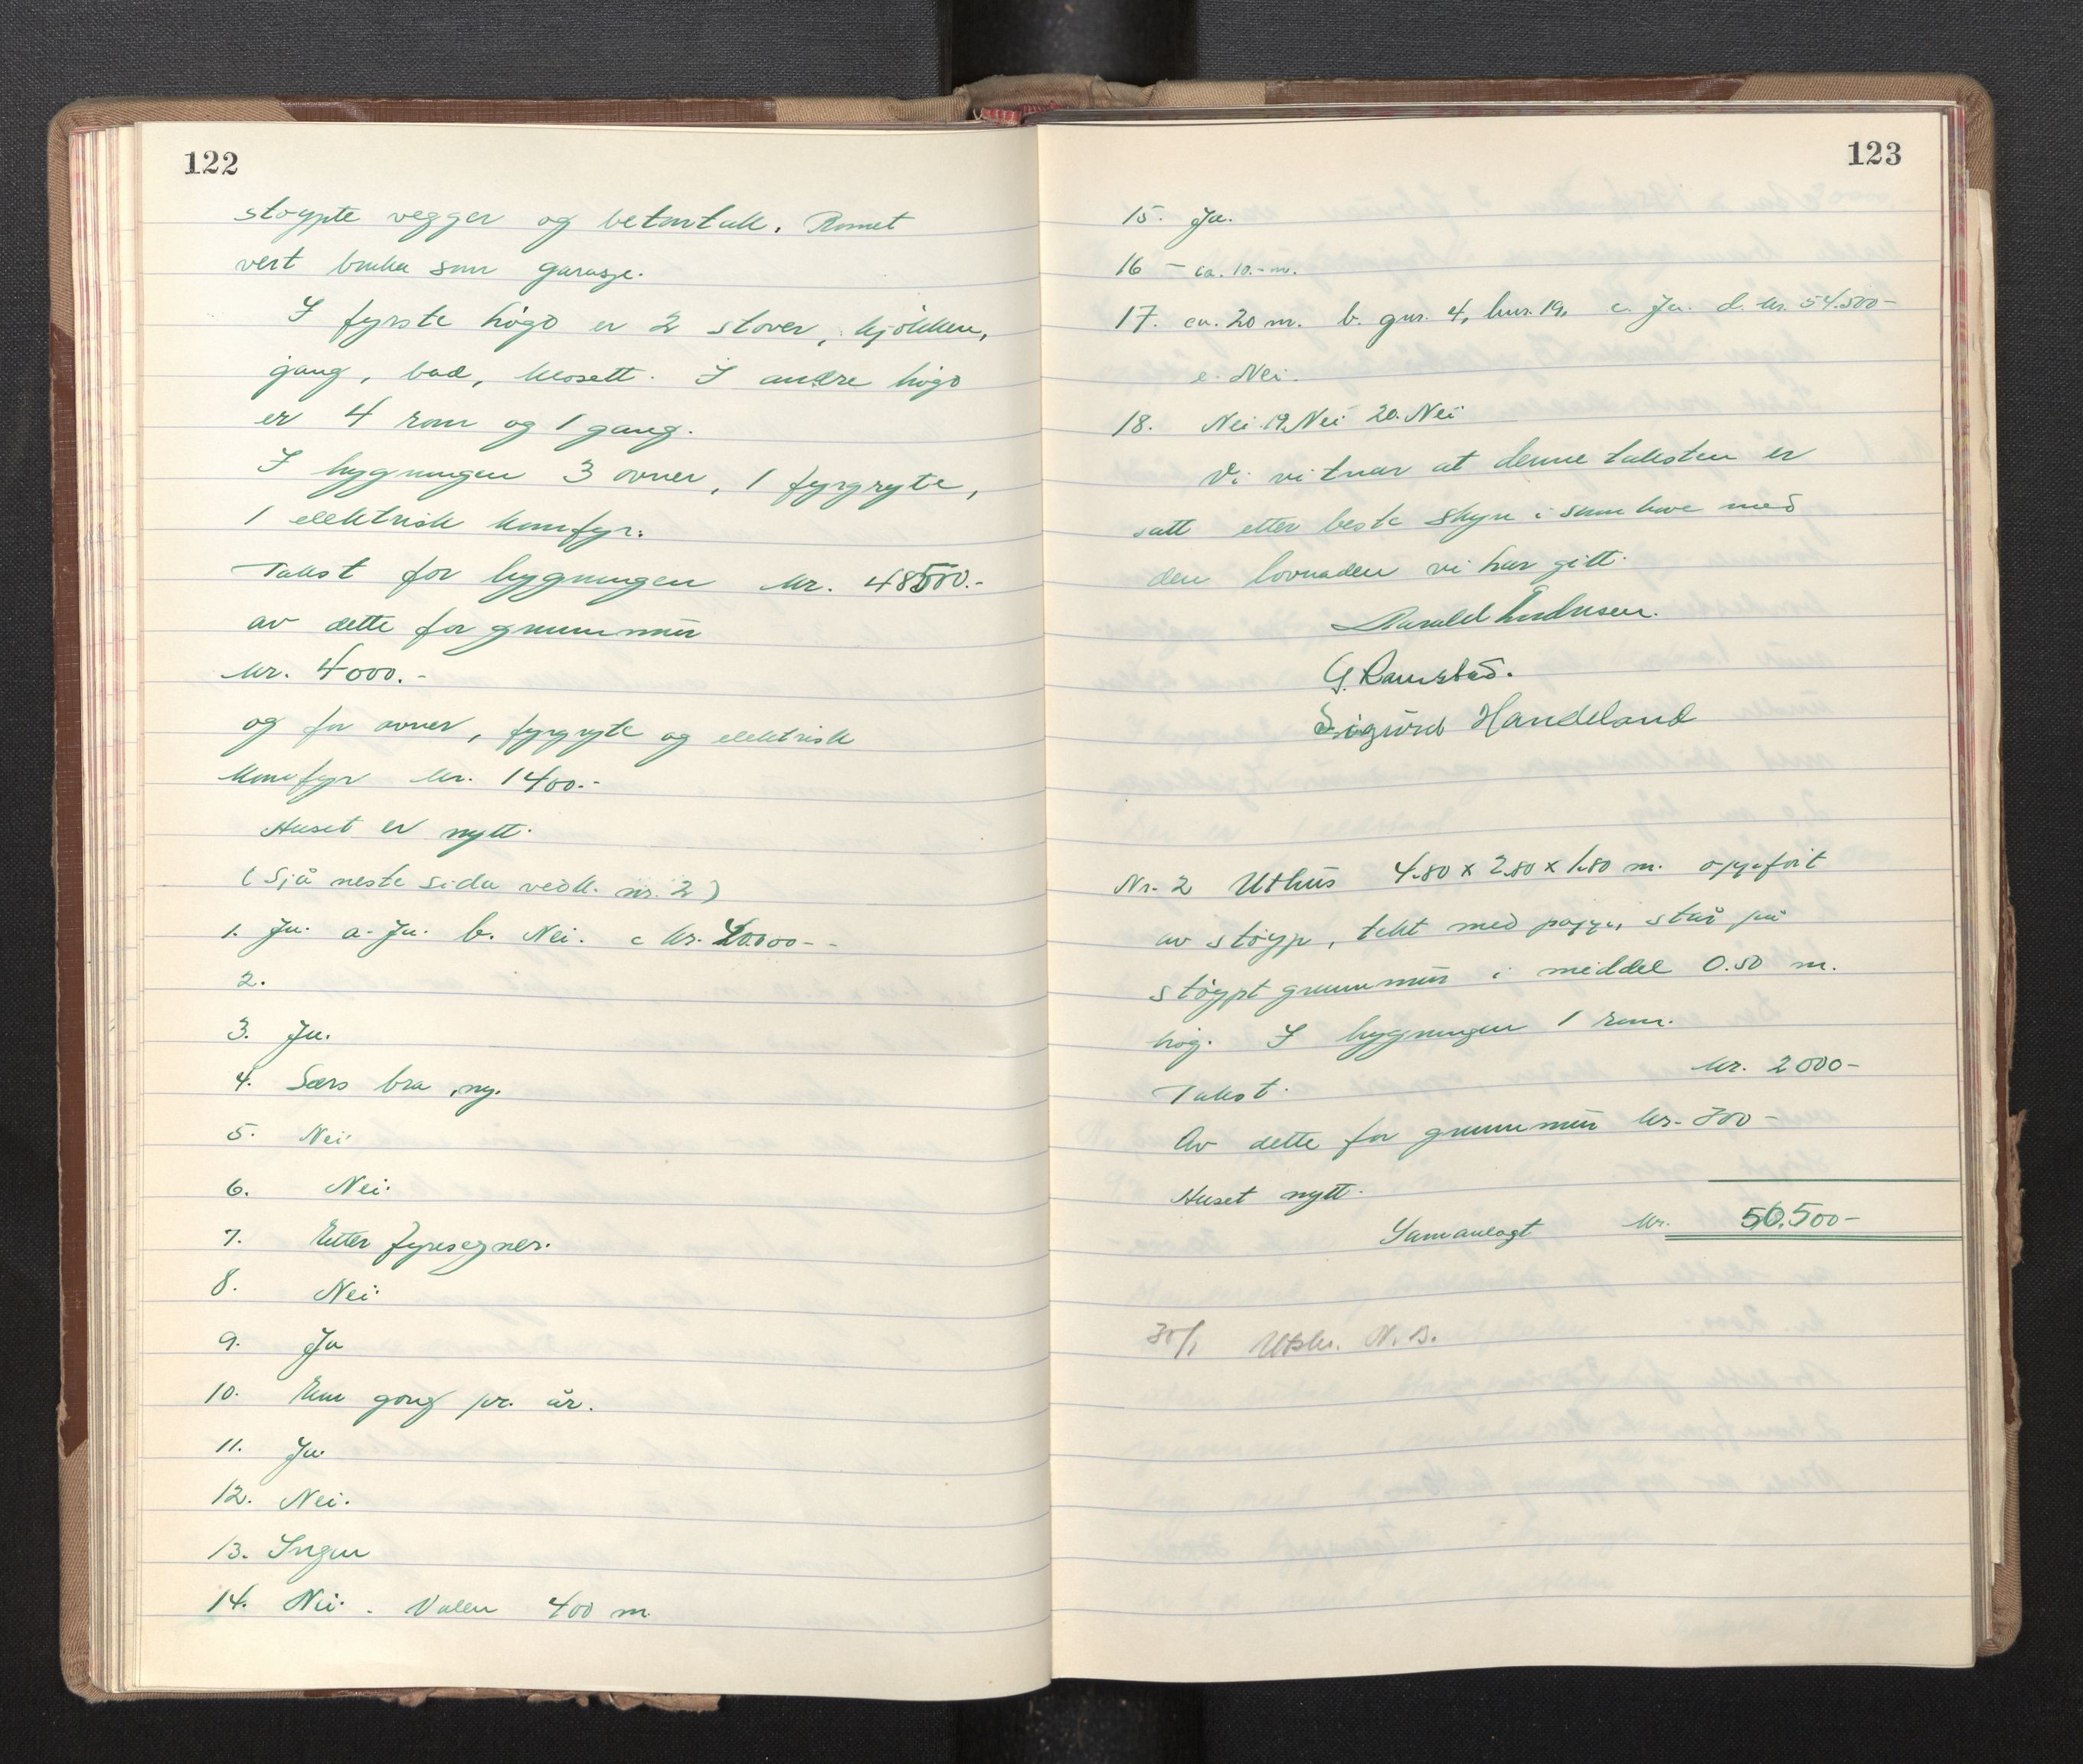 122
støypte vegger og betontak. Romet
vert bruka som garasje.
I fyrste høgd er 2 stover, kjøkken,
gang, bad, klosett. I andre høgd
er 4 rom og 1 gang.
I bygningen 3 ovner, 1 fyrgryte,
1 elektrisk komfyr.
Takst for bygningen kr. 48500.-
av dette for grunnmur
kr. 4000.-
og for ovner, fyrgryte og elektrisk
komfyr kr. 1400.-
Huset er nytt.
(Sjå neste sida vedk. nr. 2)
1. Ja. a. Ja. b. Nei. c kr. 40000--
2.
3. Ja.
4. Særs bra, ny.
5. Nei.
6. Nei.
7. Etter fyresegner.
8. Nei.
9. Ja
10. Ein gong pr. år.
11. Ja
12. Nei.
13. Ingen
14. Nei. Valen 400 m.
123
15. Ja.
16 - ca. 10.- m.
17. ca. 20 m. b. gnr. 4, bnr. 19, c. Ja. d. kr. 54.500-
e. Nei.
18. Nei. 19. Nei 20. Nei
Vi vitnar at denne taksten er
satt etter beste skyn i samhøve med
den lovnaden vi har gitt.
Harald Endresen.
G. Ramstad.
Sigurd Handeland
Nr. 2 Uthus 4.80 x 2.80 x 1.80 m. oppført
av støyp, tekt med papp, står på
støypt grunnmur i middel 0.50 m.
høg. I bygningen 1 rom.
Takst. kr. 2000-
Av dette for grunnmur kr. 300-
Huset nytt.
Samanlagt kr. 50.500-
30/1 Utskr. N.B.